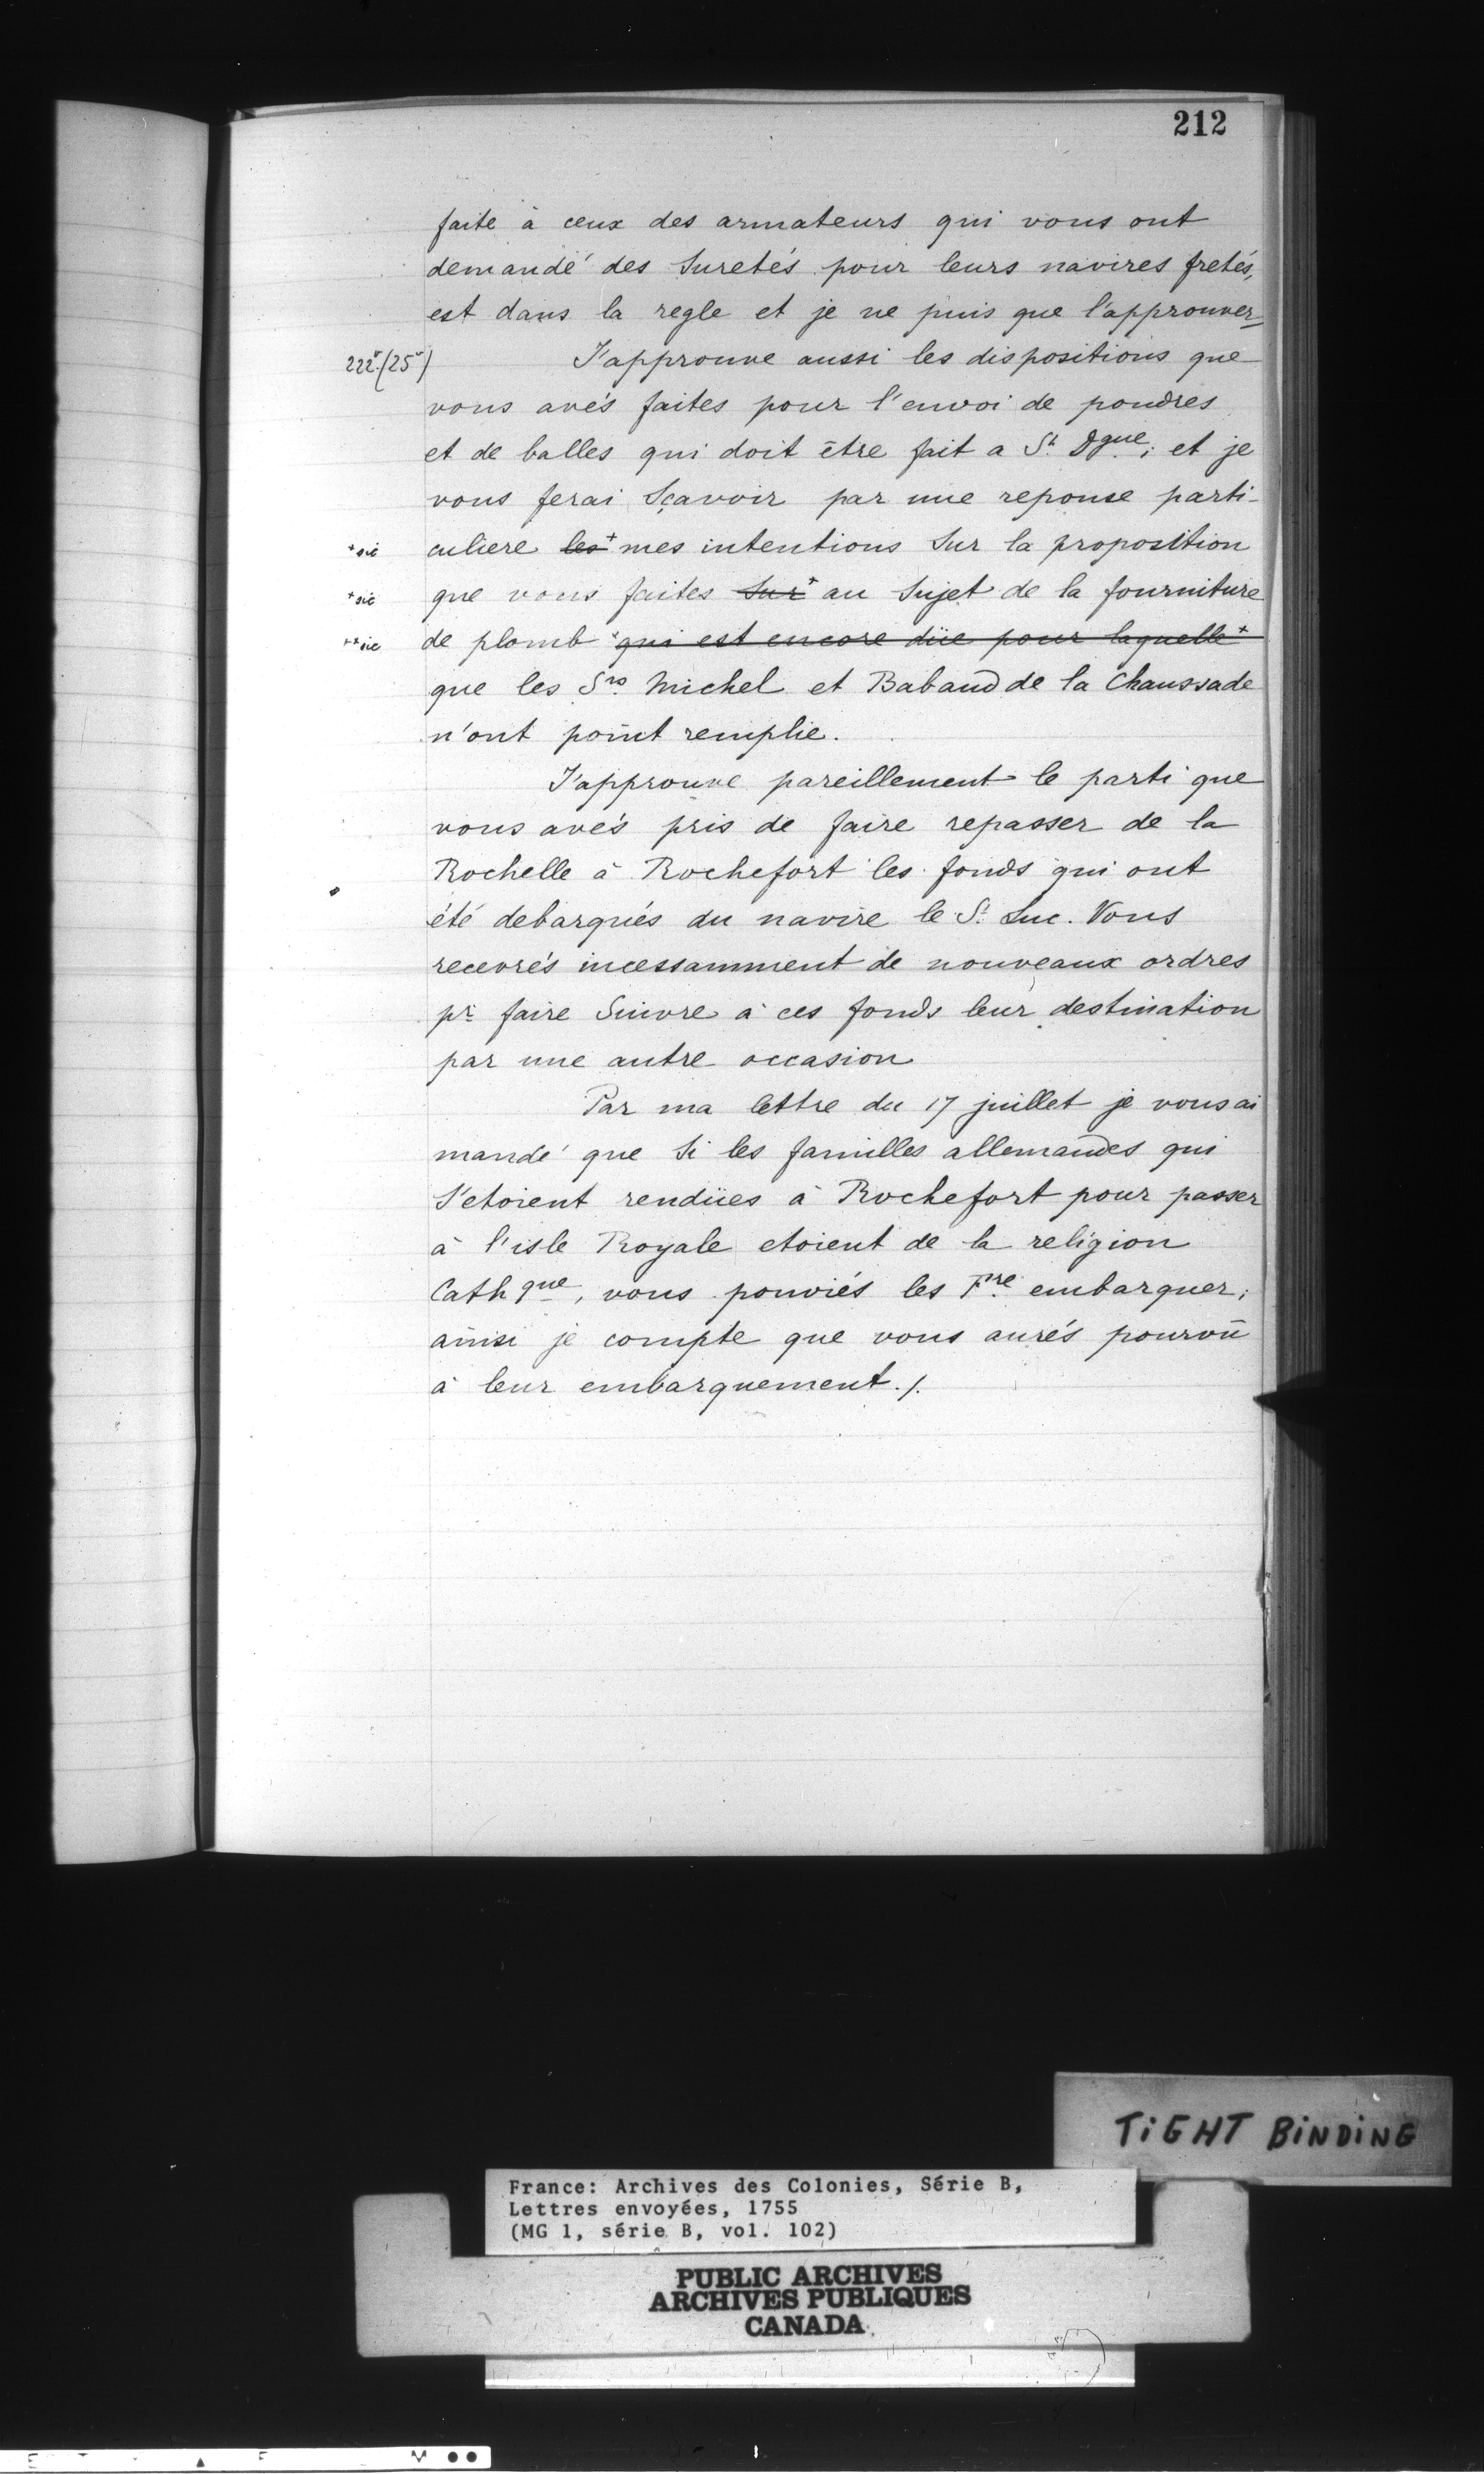 212
faite à ceux des armateurs qui vous ont
demandé des Suretés pour leurs navires fretés,
est dans la regle et je ne puis que l'approuver
222v (25v)
J'approuve aussi les dispositions que
vous avés faites pour l'envoi de poudres
et de balles qui doit être fait a St Dgue; et je
vous ferai Sçavoir par une reponse parti-
+sic culiere les+ mes intentions Sur la proposition
+sic que vous faites Sur+ au Sujet de la fourniture
++sic de plomb +qui est encore düe pour laquelle+
que les Srs Michel et Babaud de la Chaussade
n'ont point remplie.
J'approuve pareillement le parti que
vous avés pris de faire repasser de la
Rochelle à Rochefort les fonds qui ont
été debarqués du navire le St Luc. Vous
recevrés incessamment de nouveaux ordres
pr faire Suivre à ces fonds leur destination
par une autre occasion
Par ma lettre du 17 juillet je vous ai
mandé que Si les familles allemandes qui
S'etoient rendües à Rochefort pour passer
à l'isle Royale etoient de la religion
Cathque, vous pouviés les Fre embarquer;
ainsi je compte que vous aurés pourvû
à leur embarquement./.
TiGHT BiNDiNG
France: Archives des Colonies, Série B,
Lettres envoyées, 1755
(MG 1, série B, vol. 102)
PUBLIC ARCHIVES
ARCHIVES PUBLIQUES
CANADA